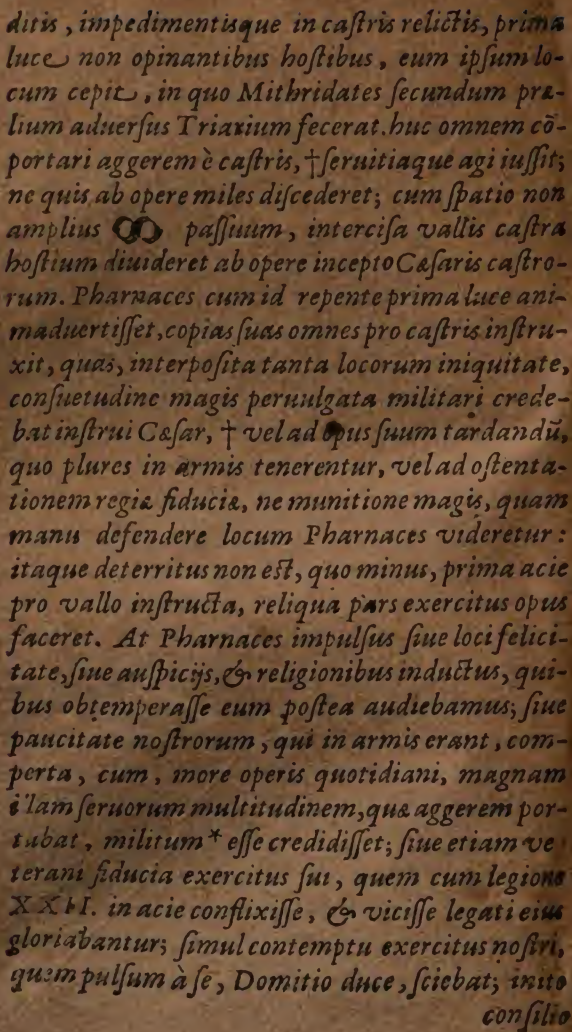 ditis, impedimentisque in caſtris relictis, prima
luce non opinantibus hoſtibus, eum ipſum lo-
cum cepit, in quo Mithridates ſecundum præ-
lium aduerſus Triarium fecerat. huc omnem cō-
portari aggerem è caſtris, †ſeruitiaque agi iuſſit;
ne quis ab opere miles diſcederet; cum ſpatio non
amplius ↀ paſſuum, interciſa vallis caſtra
hoſtium diuideret ab opere incepto Cæſaris caſtro-
rum. Pharnaces cum id repente prima luce ani-
maduertiſſet, copias ſuas omnes pro caſtris inſtru-
xit, quas, interpoſita tanta locorum iniquitate,
conſuetudine magis peruulgata militari crede-
bat inſtrui Cæſar, † vel ad opus ſuum tardandū,
quo plures in armis tenerentur, vel ad oſtenta-
tionem regiæ fiduciæ, ne munitione magis, quam
manu defendere locum Pharnaces videretur:
itaque deterritus non eſt, quo minus, prima acie
pro vallo inſtructa, reliqua pars exercitus opus
faceret. At Pharnaces impulſus ſiue loci felici-
tate, ſiue auſpicijs, & religionibus inductus, qui-
bus obtemperaſſe eum poſtea audiebamus; ſiue
paucitate noſtrorum, qui in armis erant, com-
perta, cum, more operis quotidiani, magnam
illam ſeruorum multitudinem, quæ aggerem por-
tabat, militum * eſſe credidiſſet; ſiue etiam ve
terani fiducia exercitus ſui, quem cum legione
XXII. in acie conflixiſſe, & viciſſe legati eius
gloriabantur; ſimul contemptu exercitus noſtri,
quem pulſum à ſe, Domitio duce, ſciebat; inito
conſilio